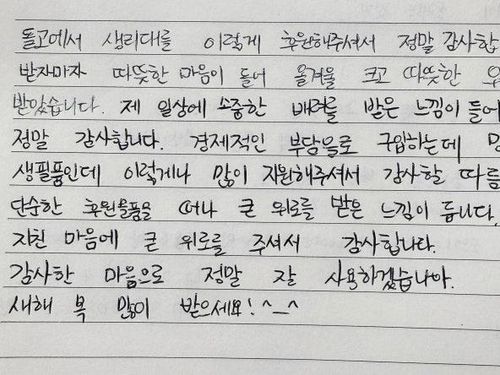 돌고에서 생리대를 이렇게 후원해주셔서 정말 감사합
받자마자 따뜻한 마음이 들어 올겨울 크고 따뜻한
받았습니다. 제 일상에 소중한 배려를 받은 느낌이 들어
정말 감사합니다. 경제적인 부담을로 구입하는데
생필품인데 이렇게나 많이 지원해주셔서 감사할 따름
단순한 후원물품을 떠나 큰 위로를 받은 느낌이 듭니다.
지친 마음에 큰 위로를 주셔서 감사합니다.
감사한 마음으로 정말 잘 사용하겠습니다.
새해 복 많이 받으세요! ^_^